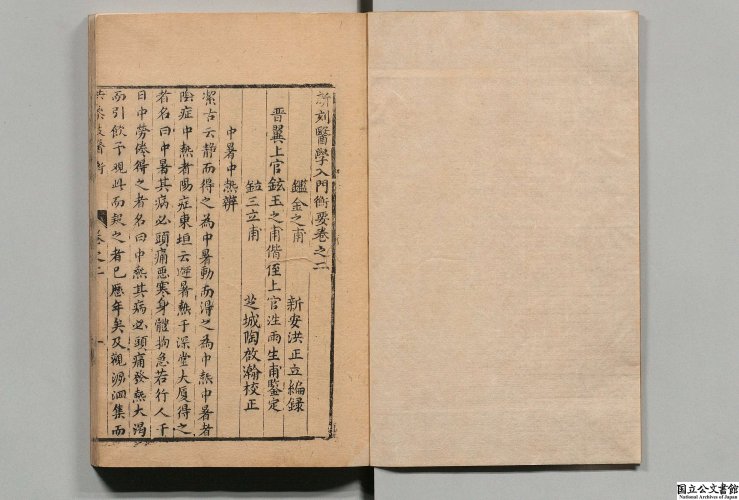 新刻醫學入門衡要卷之二
鑑金之甫　新安洪正立編錄
晋翼上官鉉玉之甫偕侄上官泩雨生甫鑒定
鉝三立甫　芝城陶啟瀚校正
中暑中熱辨
潔古云静而得之為中暑動而得之為中熱中暑者
陰症中熱者陽症東垣云避暑熱于深堂大厦得之
者名曰中暑其病必頭痛惡寒身體拘急若行人于
日中勞倦得之者名曰中熱其病必頭痛發熱大渴
而引飲予現此而疑之者已歷年矣及觀溯洄集而
卷之二　一
国立公文書館
National Archives of Japan